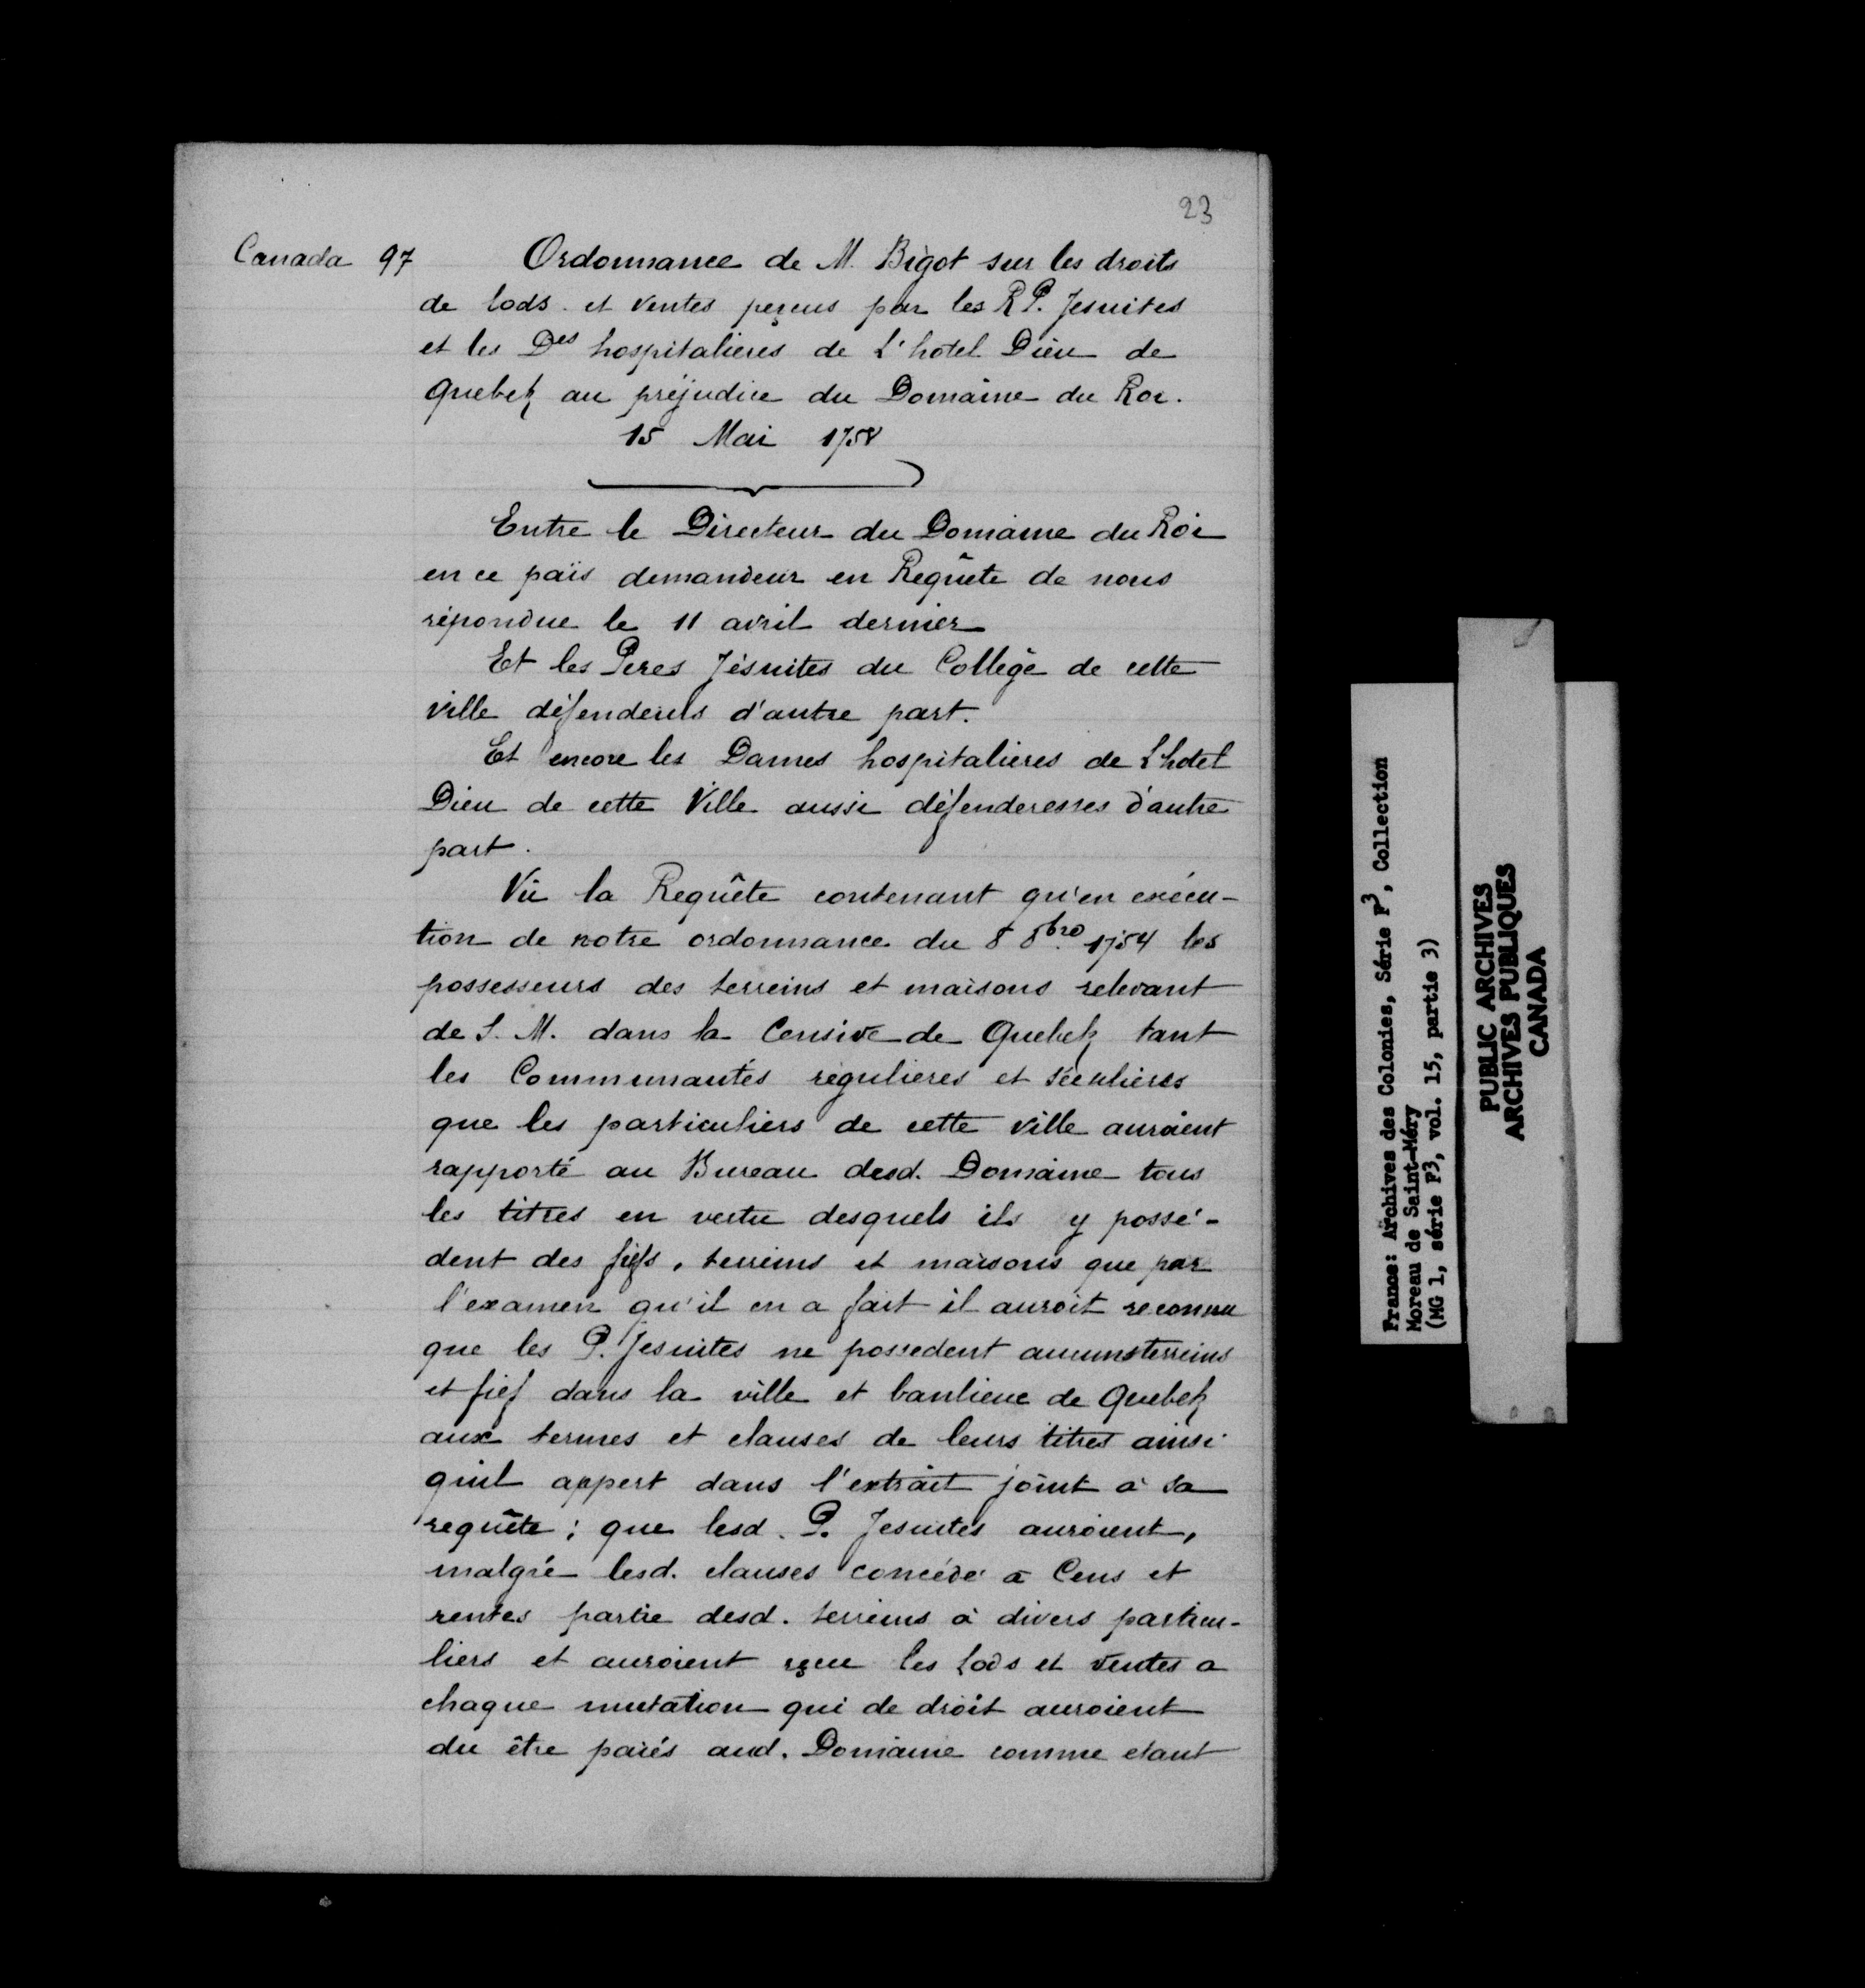 23
Canada 97
Ordonnance de M. Bigot sur les droits
de lods et ventes perçus par les R P. Jesuites
et les Des hospitalieres de L'hotel Dieu de
Quebek au préjudice du Domaine du Roi.
15 Mai 1758
Entre le Directeur du Domaine du Roi
en ce païs demandeur en Requête de nous
répondue le 11 avril dernier
Et les Peres Jésuites du College de cette
ville défendeurs d'autre part.
Et encore les Dames hospitalieres de L'hotel
Dieu de cette Ville aussi défenderesses d'autre
part.
Vû la Requête contenant qu'en exécu-
tion de notre ordonnance du 8 8bre 1754 les
possesseurs des terreins et maisons relevant
de S. M. dans la Censive de Quebek tant
les Communautés régulieres et séculieres
que les particuliers de cette ville auroient
rapporté au Bureau desd. Domaine tous
les titres en vertu desquels ils y possé-
dent des fiefs, terreins et maisons que par
l'examen qu'il en a fait il auroit reconnu
que les P. Jesuites ne possedent aucuns terreins
et fief dans la ville et banlieue de Quebek
aux termes et clauses de leurs titres ainsi
qu'il appert dans l'extrait joint à sa
requête; que lesd. P. Jesuites auroient,
malgré lesd. clauses concédé à Cens et
rentes partie desd. terreins à divers particu-
liers et auroient reçu les lods et ventes a
chaque mutation qui de droit auroient
du être païés aud. Domaine comme etant
France: Archives des Colonies, Série F3, Collection
Moreau de Saint-Méry
(MG 1, série F3, vol. 15, partie 3)
PUBLIC ARCHIVES
ARCHIVES PUBLIQUES
CANADA